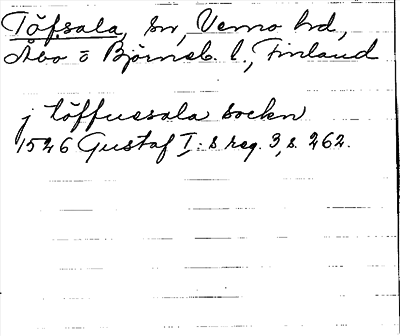 Töfsala, sn, Vemo hd,
Åbo o Björneb. l., Finland
j töffussala sockn
1526 Gustaf I:s reg. 3, s. 262.